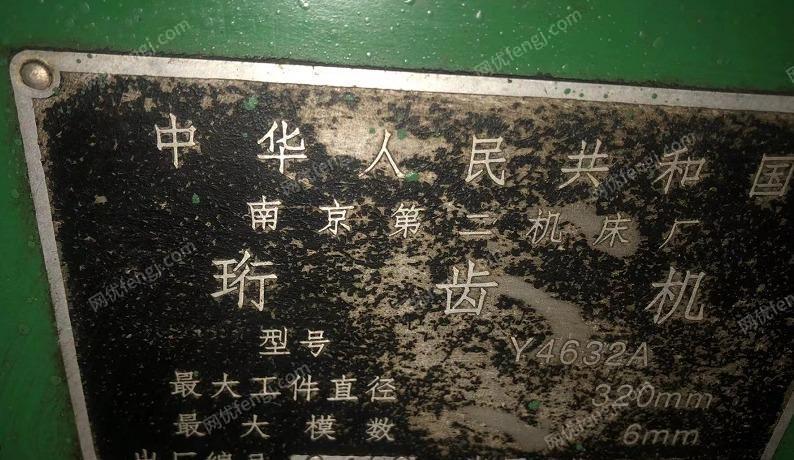 中华人民共和国
南京第二机床厂
珩齿机
型号 Y4632A
最大工件直径 320mm
最大模数 6mm
出厂编号
网优fengj.com